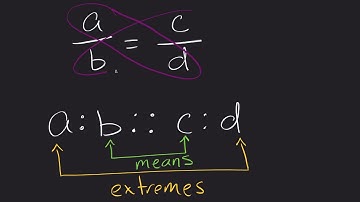 a/b = c/d
a : b :: c : d
means
extremes